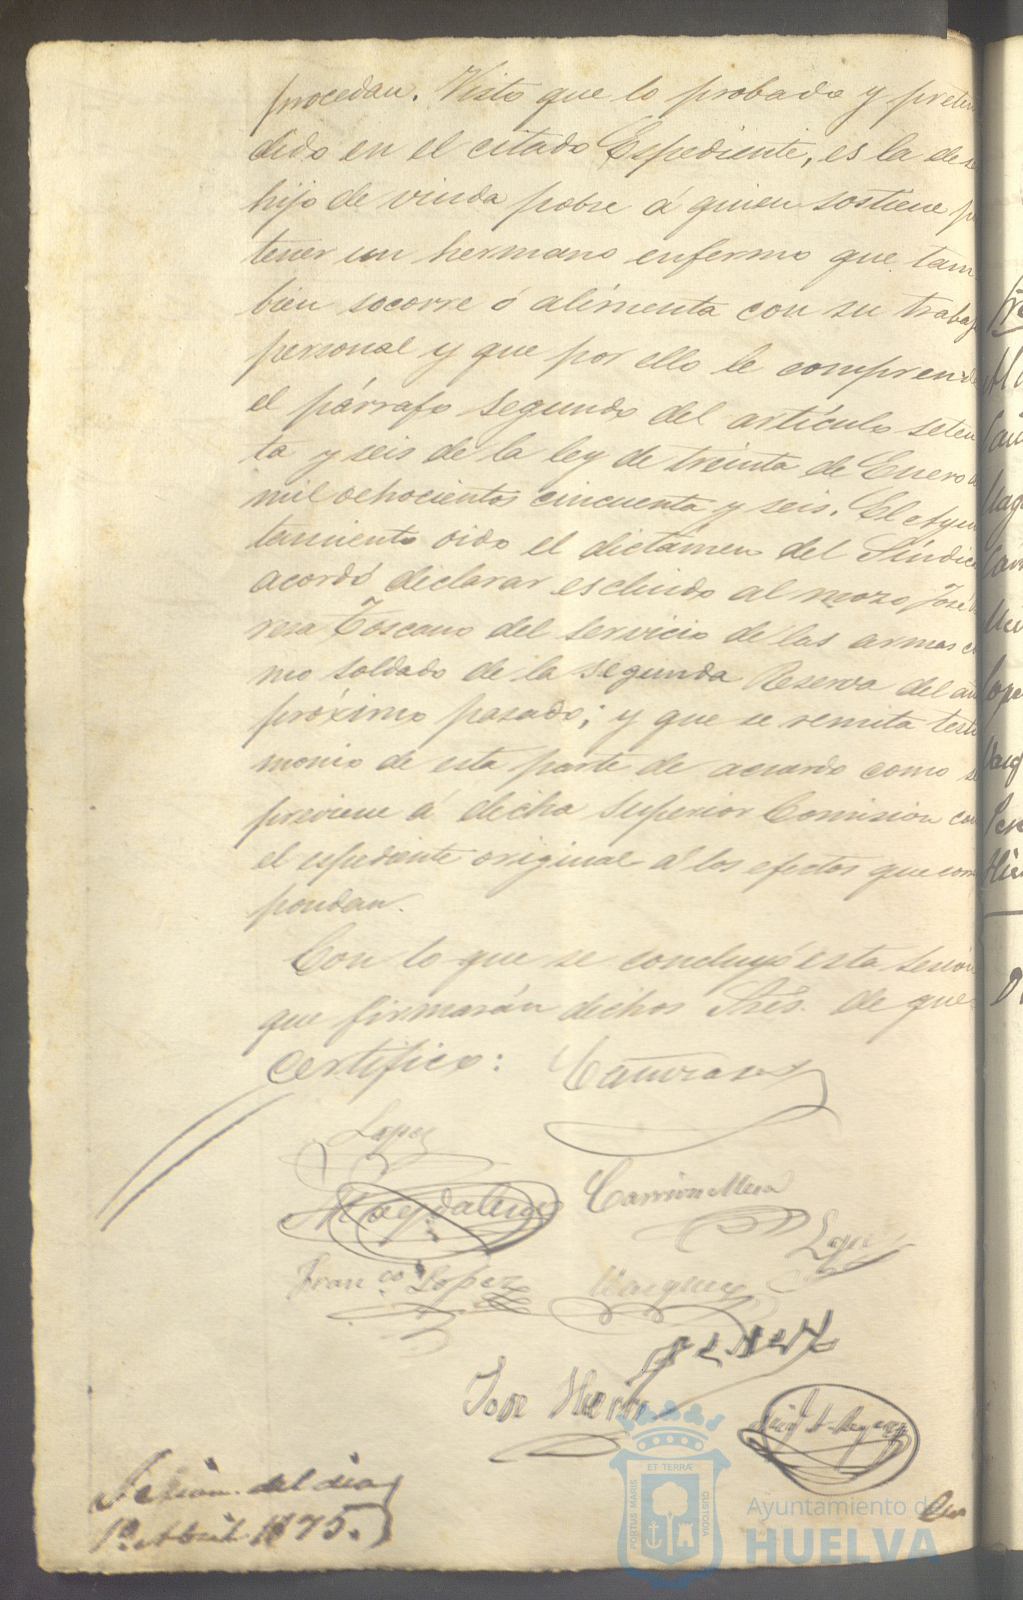 procedan. Visto que lo probado y preten
dido en el citado Espediente, es la de
hijo de viuda pobre á quien sostiene
tener un hermano enfermo que tam
bien socorre ó alimenta con su trabaj
personal y que por ello le compren
el párrafo segundo del artículo seten
ta y seis de la ley de treinta de Enero
mil ochocientos cincuenta y seis. El Ayun
tamiento oido el dictamen del Síndico
acordó declarar escluido al mozo José
Toscano del servicio de las armas co
mo soldado de la segunda Reserva del añ
próximo pasado; y que se remita testi
monio de esta parte de acuerdo como se
previene á dicha Superior Comision con
el espediente original á los efectos que corres
pondan.
Con lo que se concluyó esta sesión
que firmarán dichos Sres. de que
Certifico:
Lopez
Magdaleno
Carrion Mesa
Lopez
Fran.co Lopez
Vazquez
Perez
Jose
Sesion del dia
1º Abril 1875.
PORTUS MARIS
ET TERRÆ
CUSTODIA
Ayuntamiento de
HUELVA